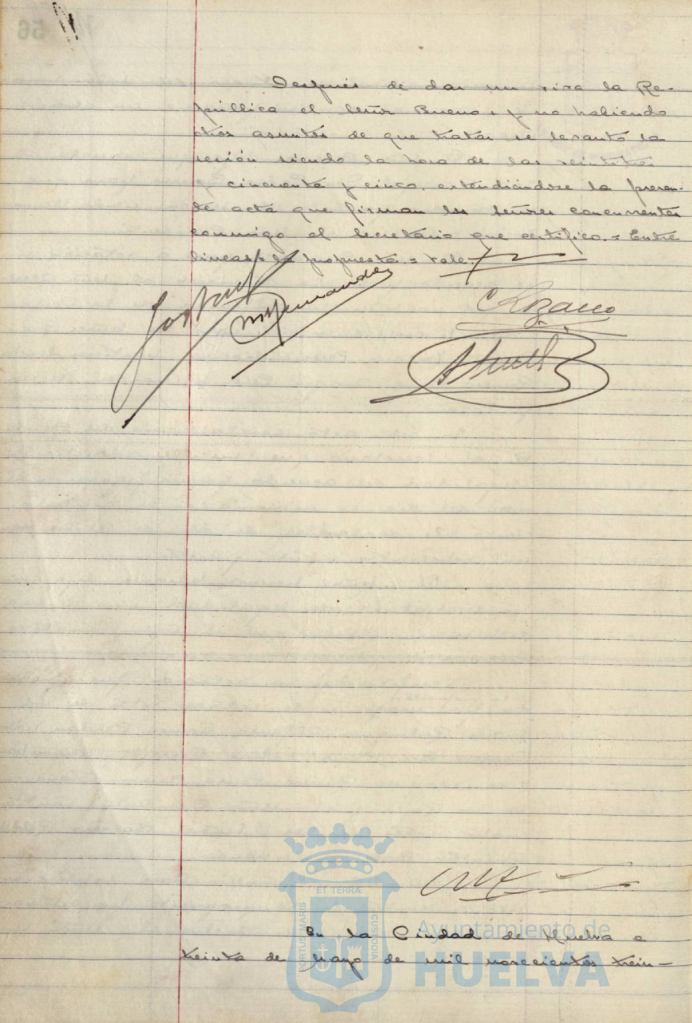 Después de dar un viva la Re-
pública el señor Bueno, y no habiendo
otros asuntos de que tratar se levantó la
sesión siendo la hora de las veintitrés
y cincuenta y cinco, extendiéndose la presen-
te acta que firman los señores concurrentes
conmigo el Secretario que certifico.= Entre
lineas= la propuesta.= Vale.
M Fernandez
C Lozano
ET TERRÆ
PORTUS MARIS
CUSTODIA
Ayuntamiento de
HUELVA
En la Ciudad de Huelva a
treinta de Mayo de mil novecientos trein-